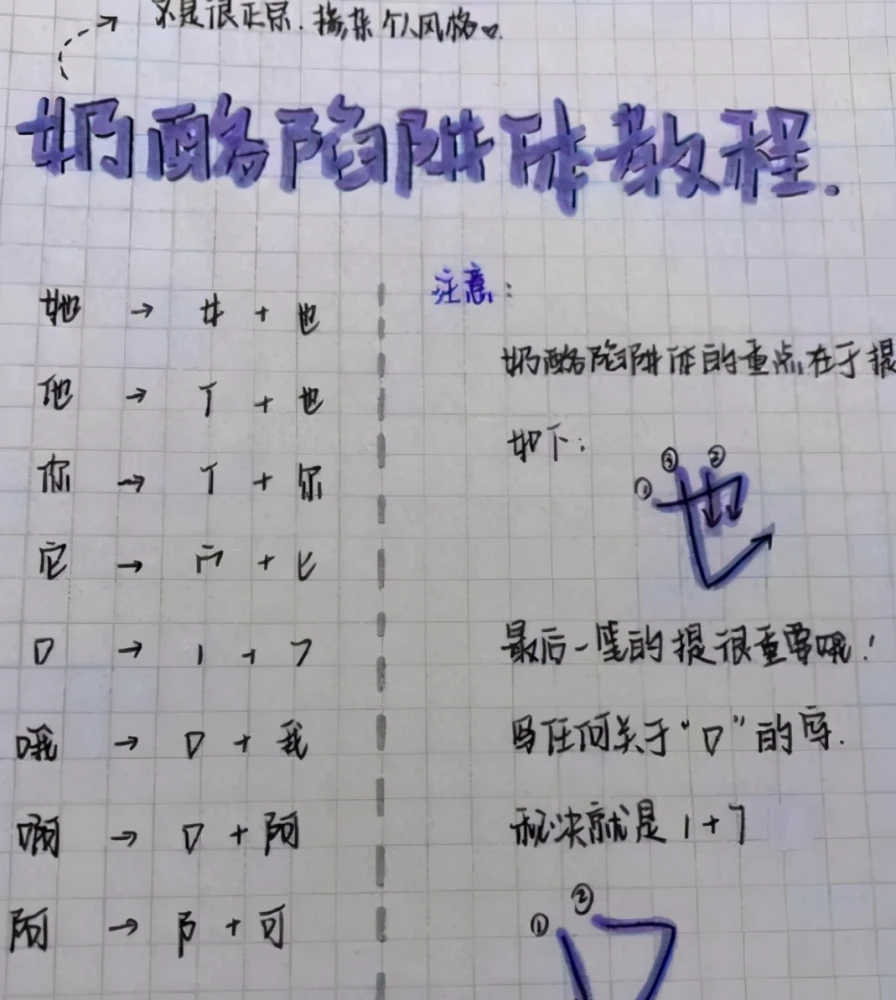 不是很正宗.掺杂个人风格♡.
奶酪陷阱体教程.
她 → 女 + 也
他 → 亻 + 也
你 → 亻 + 尔
它 → 宀 + 匕
口 → 1 + 7
哦 → 口 + 我
啊 → 口 + 阿
阿 → 阝 + 可
注意:
奶酪陷阱体的重点在于提
如下:
① ③ ②
也
最后一笔的提很重要哦!
写任何关于“口”的字.
秘决就是 1 + 7
① ②